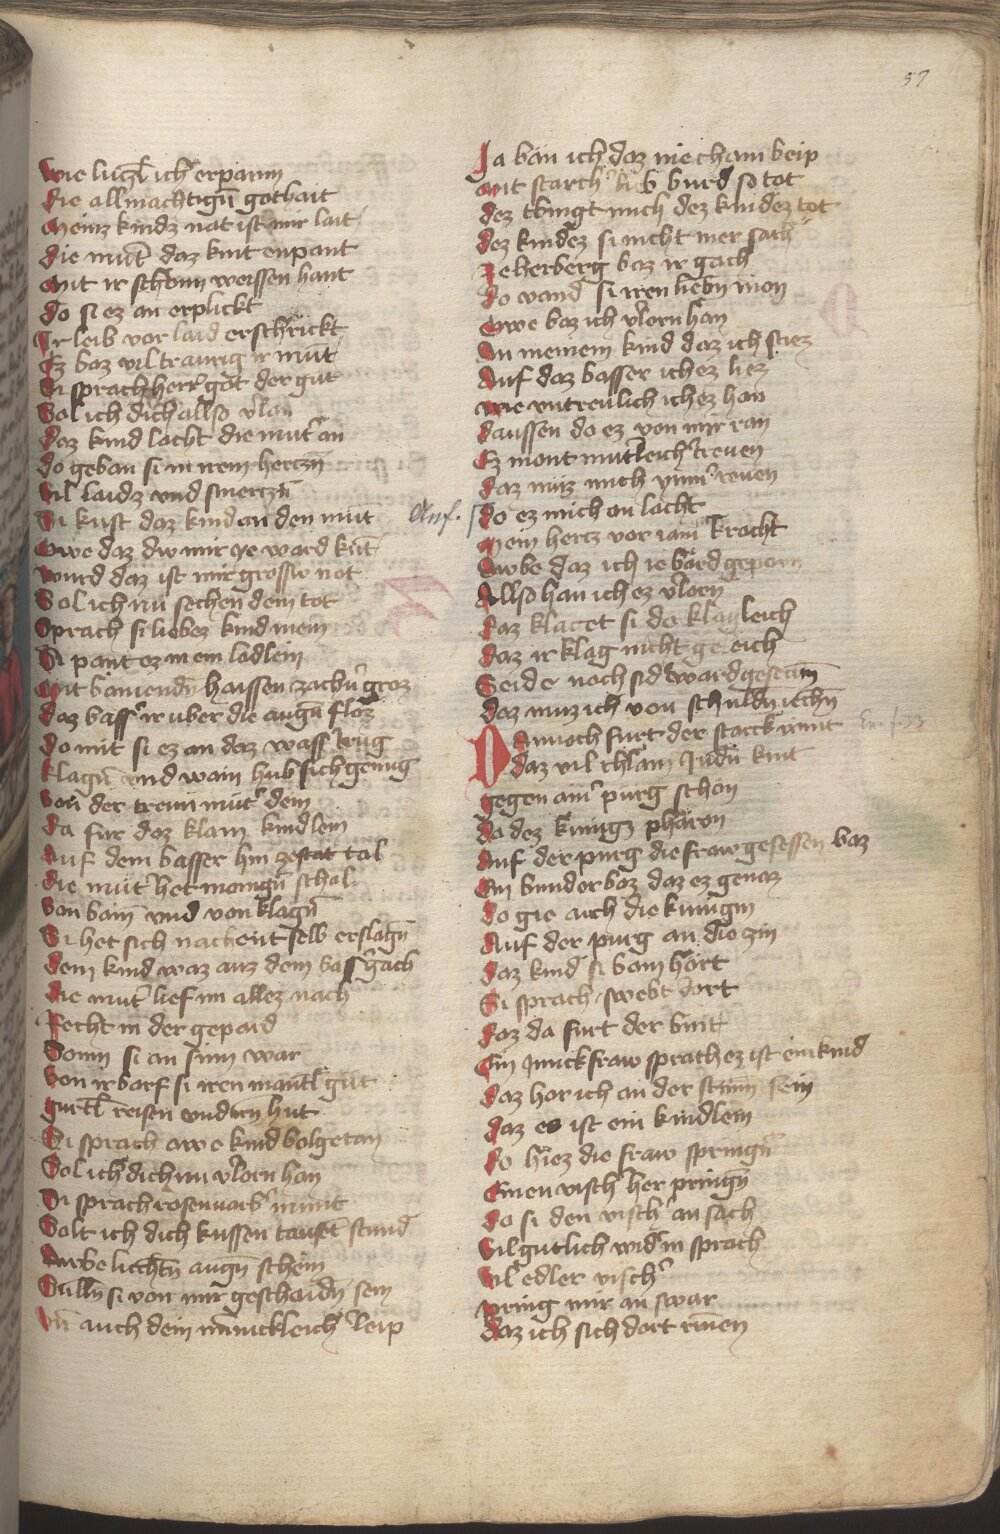 57
wie lutzl ich erparm
die allmachtigñ gothait
meinz kindz not ist mir lait
die mut̃ daz kint enpant
mit ir schonn weissen hant
do si ez an erplickt
Ir leib vor laid erschrickt
Ez boz vil traurig ir mut
Si sprach herr got der gut
Sol ich dich allso v̓lan
daz kind lacht die mut̓ an
do geban si in irem herczñ
vil laidz vnd smerczñ
Si kust daz kind an den mūt
Owe daz dw mir ye ward kūt
wurd daz ist mir grossw not
Sol ich nu sechen dein tot
Sprach si liebez kind mein
Si pant ez in ein ladlein
mit bainendñ haissen zach̓n groz
daz bass̓ ir uber die augñ floz
do mit si ez an daz wass̓ trug
klagñ vnd wain hub sich genug
von der trewn mut̓ dem
da fur daz klain kindlein
Auf dem basser hin ze tal
die mut̓ het manigñ schal
von bain vnd von klagñ
Si het sich nachent selb erslagñ
dem kind waz auz dem bass̓ gach
die mut̓ lief im allez nach
recht in der gepard
Sonn si an sinn war
von ir barf si iren mantl̃ gut
gurtl̃ reisen vnd irñ hut
Si sprach awe kind bolgetan
Sol ich dich nu v̓lorn han
Si sprach rosenuarb̓ munt
Solt ich dich kussen taust stund
Awbe liechtñ augñ schein
Sullñ si von mir geschaidñ sein
vñ auch dein minickleich̓ leip
Ja bān ich daz nie cham beip
mit starch̓ lib burd so tot
dez tbingt mich dez kindez tot
dez kindez si nicht mer sach
ze herberg boz ir gach
do wand si iren liebñ mon
Owe boz ich v̓lorn han
An meinem kind daz ich stiez
Auf daz basser ich ez liez
wie vntreulich ich ez han
daussen do ez von mir ran
Ez mont mutleich̓ treuen
daz muz mich ymm̓ reuen
Anf.
do ez mich an lacht
mein hercz vor iam̓ kracht
awbe daz ich ie bard geporn
Allso han ich ez v̓lorn
daz klaget si do klagleich
daz ir klag nicht geleich
Seider noch sid ward gesechñ
daz muz ich von schuldñ iechñ
Dannoch furt der starck wint
daz vil chlain Judñ kint
gegen ain̓ purg schon
da dez kunigz pharon
Auf der purg die fraw gesessen boz
Ein bunder boz daz ez genaz
do gie auch die kunigin
Auf der purg an die zin
daz kind si bain hort
Si sprach swebt dort
daz da furt der bint
Ein Junckfraw sprach ez ist ein kind
daz hor ich an der stimm sein
daz es ist ein kindlein
do hiez die fraw springñ
Einen visch̓ her pringñ
do si den visch̓ an sach
vil gutlich wid̓ in sprach
vil edler visch̓
pring mir an swar
daz ich sich dort rinen